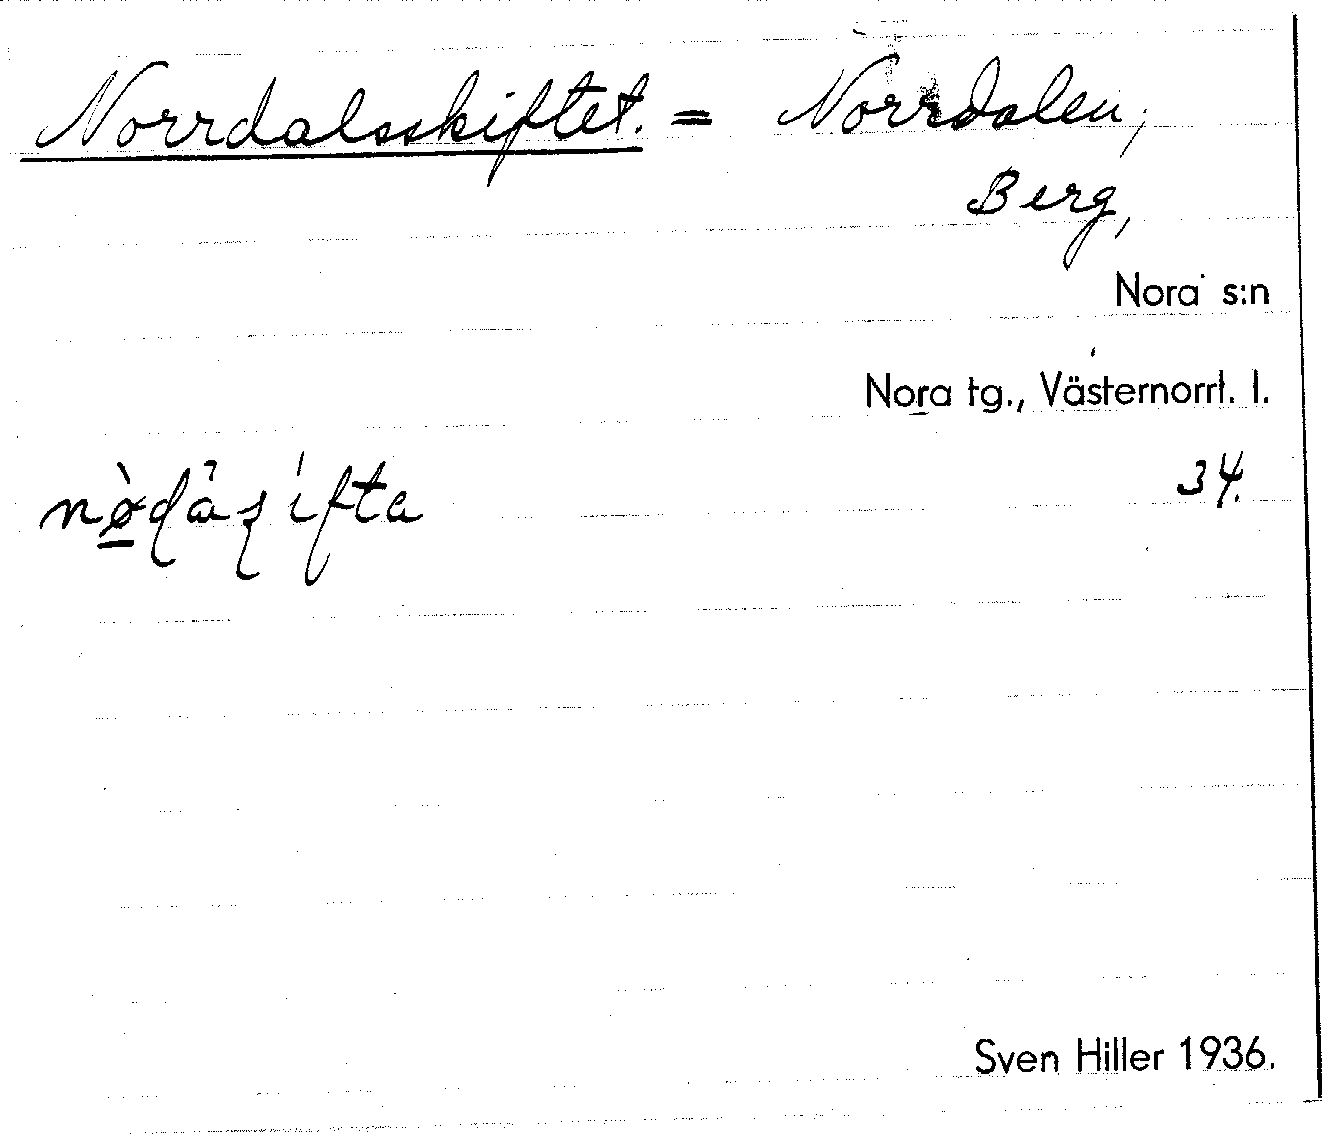 Norrdalsskiftet. = Norrdalen,
Berg,
Nora s:n
Nora tg., Västernorrl. l.
34.
Sven Hiller 1936.